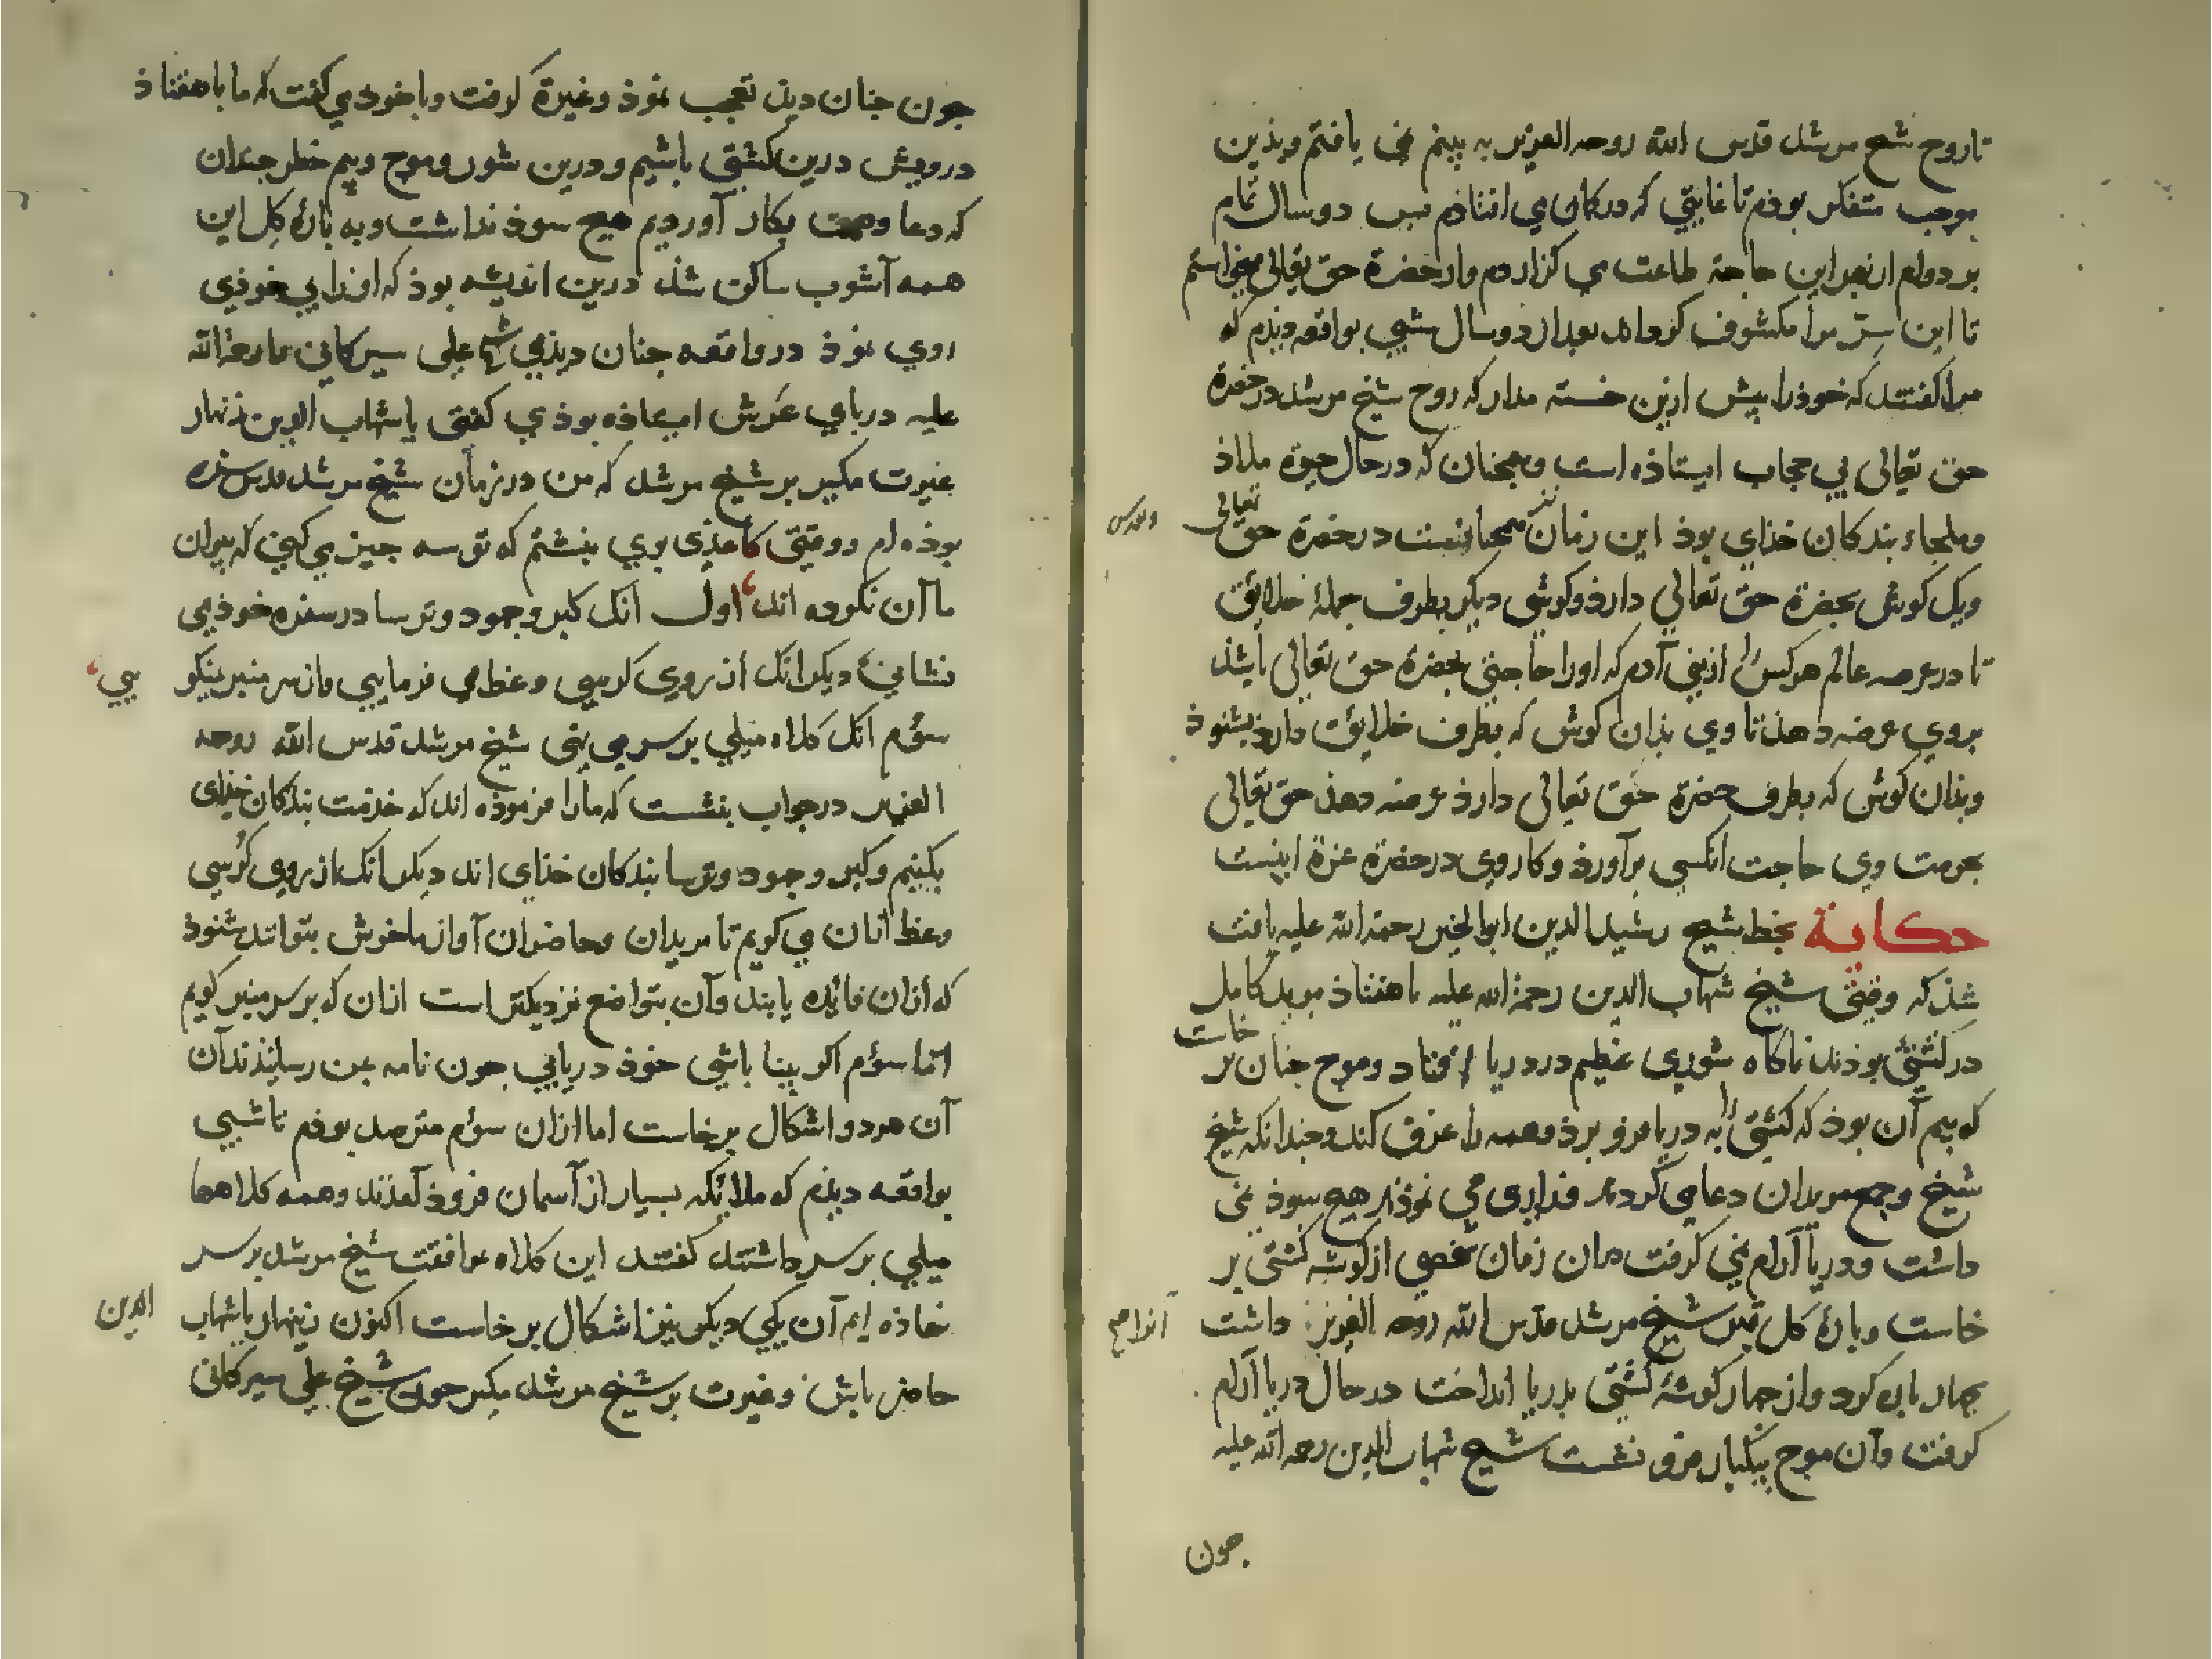 تا روح شیخ مرشد قدس الله روحه العزیز به بینم نمی یافتم وبذین
موجب متفکر بوذم تا غایتی که در کمان می افتاذم پس دو سال تمام
بر دوام از بهر این حاجة طاعت می کزاردم واز حضرة حق تعالی میخواستم
تا این سرّ مرا مکشوف کرداند بعد از دو سال شبی بواقعه دیذم که
مرا کفتند که خوذ را بیش ازین خسته مدار که روح شیخ مرشد در حضرة
حق تعالی بی حجاب ایستاذه است وهمجنان که در حال حیوة ملاذ
وملجاء بندکان خذای بوذ این زمان نیز همجنانست در حضرة حق تعالی
ویک کوش بحضرة حق تعالی دارذ وکوشی دیکر بطرف جملهٔ خلائق
تا در عرصه عالم هر کس را از بنی آدم که او را حاجتی بحضرة حق تعالی باشذ
بروی عرضه دهذ تا وی بذان کوش که بطرف خلایق دارذ بشنوذ
وبذان کوش که بطرف حضرة حق تعالی دارذ عرضه دهذ حق تعالی
بحرمت وی حاجت انکس برآورذ وکار وی در حضرة عزة اینست
حکایة بخط شیخ رشید الدین ابو الخیر رحمة الله علیه یافت
شذ که وقتی شیخ شهاب الدین رحمة الله علیه با هفتاذ مرید کامل
در کشتی بوذند ناکاه شوری عظیم در دریا افتاد وموج جنان بر خاست
که بیم آن بوذ که کشتی را به دریا فرو برذ وهمه را غرق کند وجندانکه شیخ
شیخ وجمع مریدان دعا می کردند وزاری می نموذند هیج سوذ نمی
داشت ودریا آرام نمی کرفت دران زمان شخصی از کوشه کشتی بر
خاست وپارهٔ کل قبر شیخ مرشد قدس الله روحه العزیز داشت
بجهار پاره کرد واز جهار کوشهٔ کشتی بدریا انداخت در حال دریا آرام
کرفت وآن موج بیکبار فرو نشست شیخ شهاب الدین رحمه الله علیه
جون
جون جنان دید تعجب نموذ وغیرة کرفت وبا خود می کفت که ما با هفتاذ
درویش درین کشتی باشیم ودرین شور وموج وبیم خطر جندان
که دعا وهمت بکار آوردیم هیج سوذ نداشت وبه پارهٔ کل این
همه آشوب ساکن شذ درین اندیشه بوذ که او را بی خوذی
روی نموذ در واقعه جنان دیذی شیخ علی سیرکانی ما رحمة الله
علیه در پای عرش ایستاذه بوذی کفتی یا شهاب الدین زنهار
غیرت مکیر بر شیخ مرشد که من در زمان شیخ مرشد قدس سره
بوذه ام ووقتی کاغذی بوی بنبشتم که تو سه جیز می کنی که پیران
ما آن نکرده اند اول انک کبر وجهود وترسا در سفره خوذ می
نشانی دیکر انک از روی کرسی وعظ می فرمایی واز سر منبر نیکو یی
سوّم انک کلاه میلی بر سر می نهی شیخ مرشد قدس الله روحه
العزیز در جواب بنشست که ما را فرموذه اند که خذمت بندکان خذای
بکنیم وکبر وجهود وترسا بندکان خذای اند دیکر انک از روی کرسی
وعظ ازان می کویم تا مریدان وحاضران آواز ما خوش بتوانند شنوذ
که ازان فائده یابند وآن بتواضع نزدیکتر است ازان که بر سر منبر کویم
اما سوّم اکر بینا باشی خوذ دریابی جون نامه بمن رسانیذند آن
آن هر دو اشکال بر خاست اما ازان سوّم مترصد بوذم تا شبی
بواقعه دیذم که ملائکه بسیار از آسمان فروذ آمذند وهمه کلاهها
میلی بر سر داشتند کفتند این کلاه بموافقت شیخ مرشد بر سر
نهاذه ایم آن یکی دیکر نیز اشکال بر خاست اکنون زینهار یا شهاب الدین
حاضر باش وغیرت بر شیخ مرشد مکیر جون شیخ علی سیرکانی